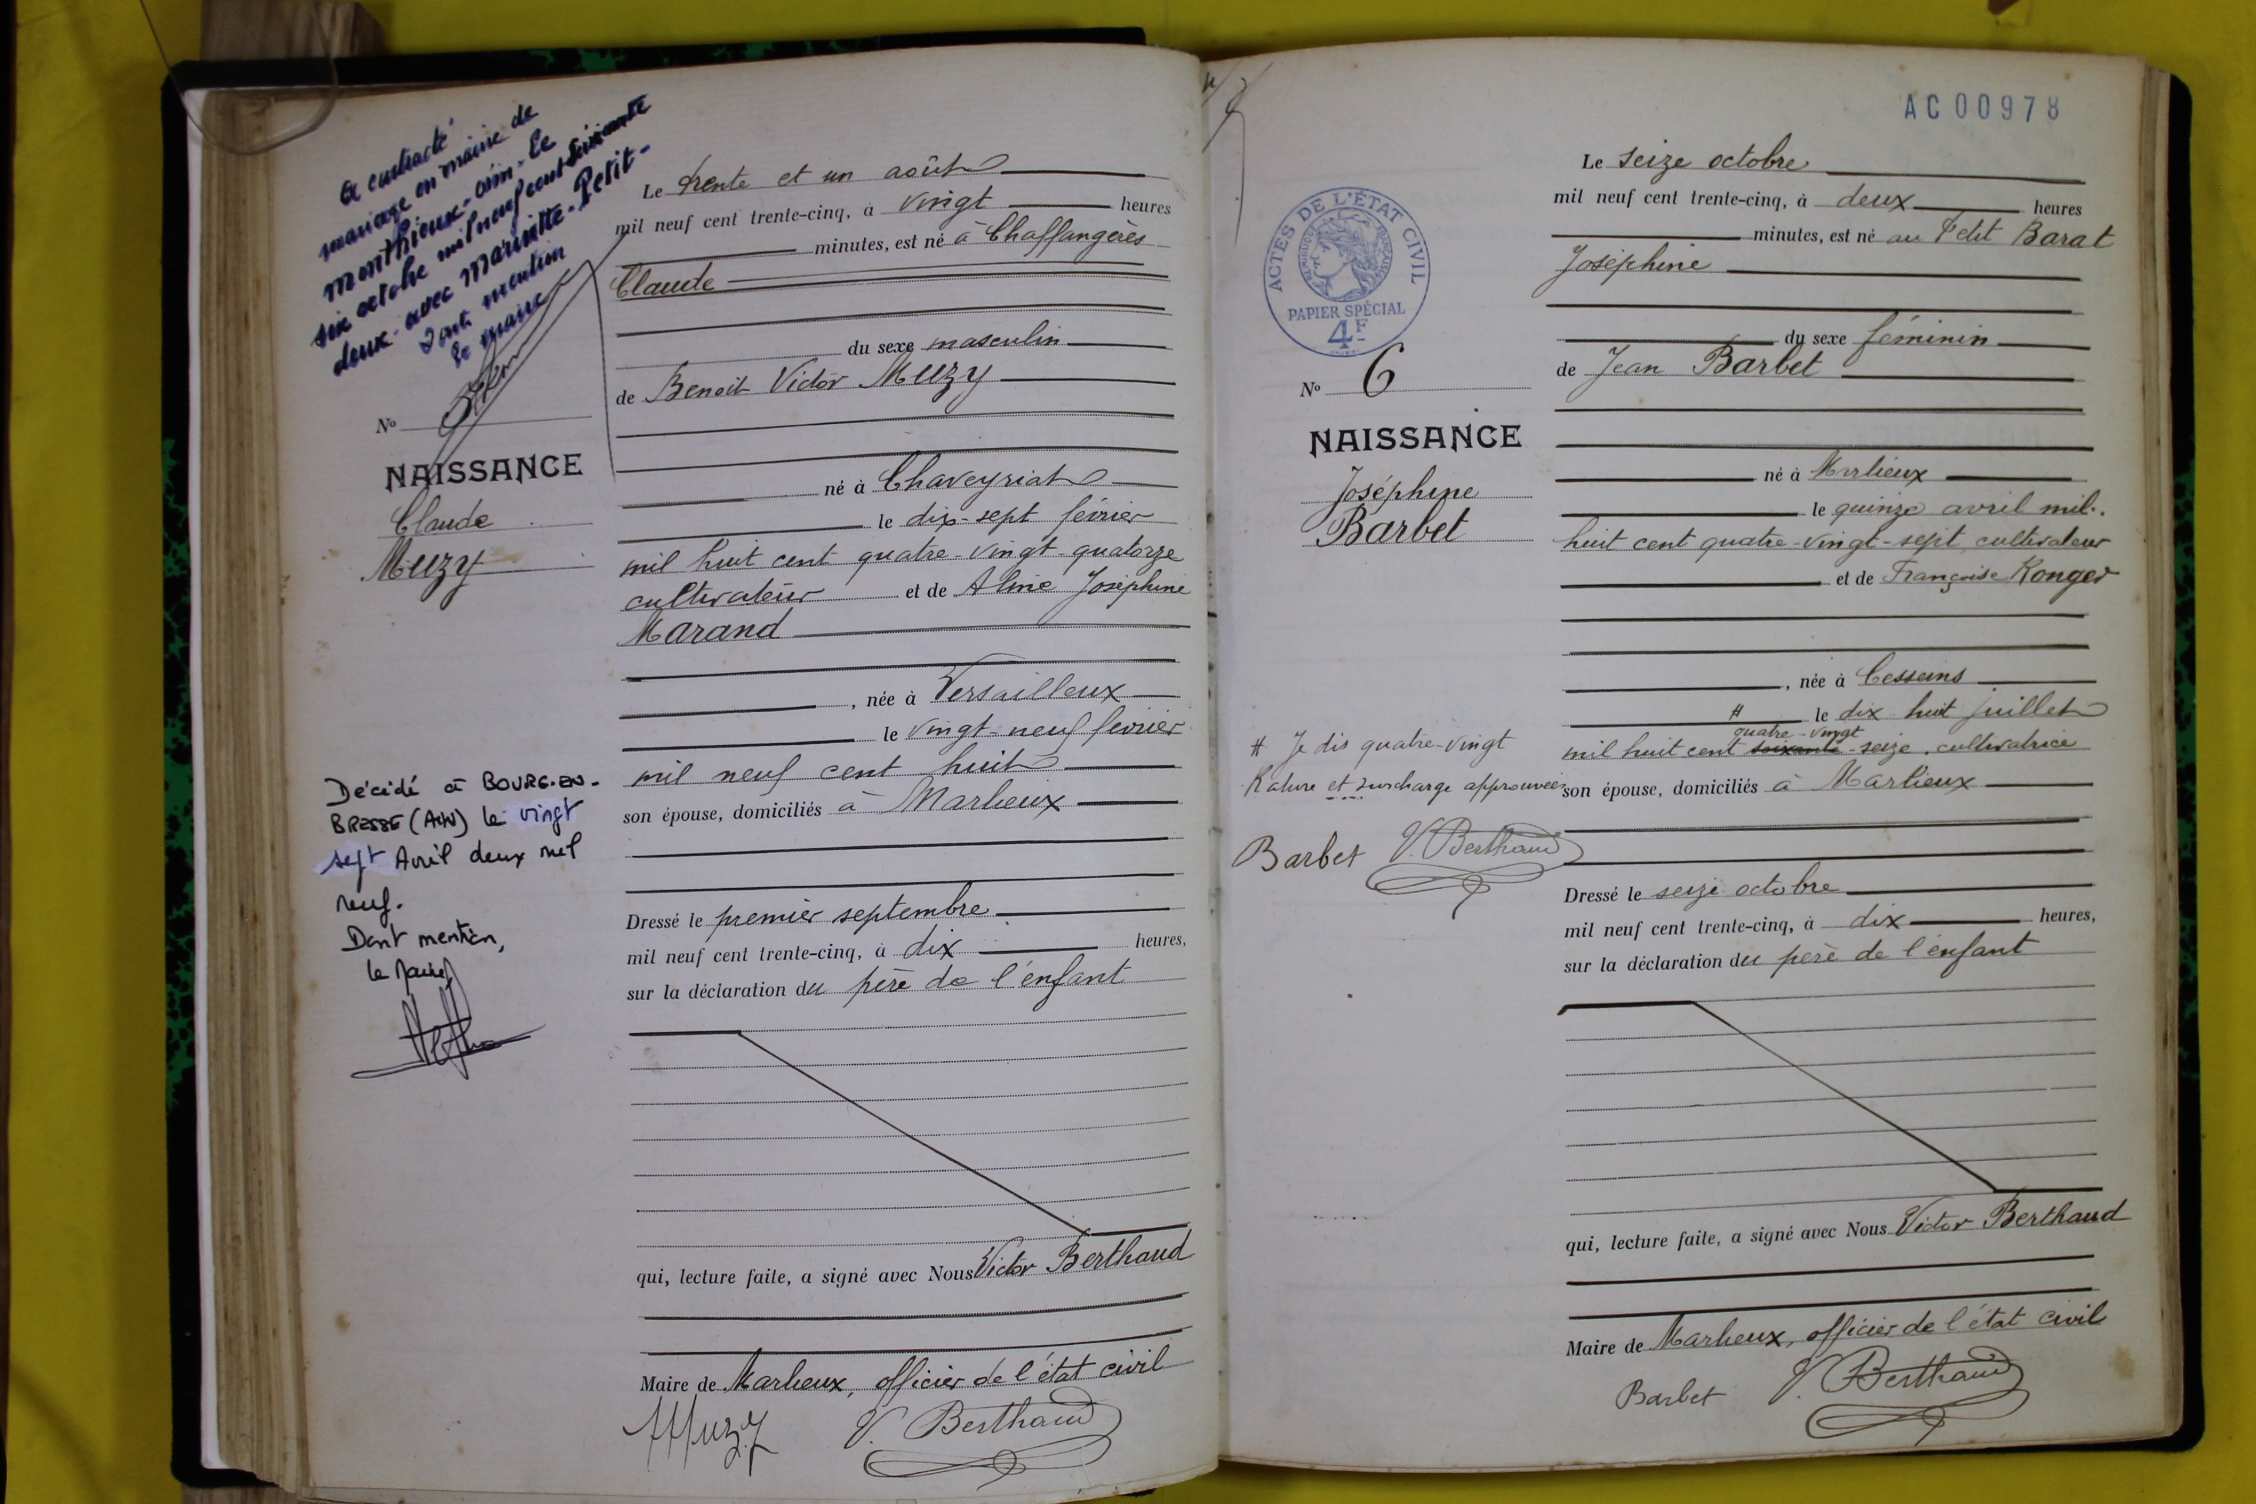 a contracté
mariage en mairie de
monthieux - ain - le
six octobre mil neuf cent soixante
deux - avec Marinette - Petit -
Dont mention
le maire
Nº
NAISSANCE
Claude
Muzy
Décédé à BOURG-EN-
BRESSE (AIN) le vingt
sept Avril deux mil
neuf.
Dont mention,
le Maire
Le trente et un août
mil neuf cent trente-cinq, à vingt heures
minutes, est né à Chaffangères
Claude
du sexe masculin
de Benoit Victor Muzy
né à Chaveyriat
le dix-sept février
mil huit cent quatre-vingt-quatorze
cultivateur et de Aline Joséphine
Marand
, née à Versailleux
le vingt-neuf février
mil neuf cent huit
son épouse, domiciliés à Marlieux
Dressé le premier septembre
mil neuf cent trente-cinq, à dix heures,
sur la déclaration du père de l'enfant
qui, lecture faite, a signé avec Nous Victor Berthaud
Maire de Marlieux, officier de l'état civil
Muzy V. Berthaud
AC00978
ACTES DE L'ÉTAT CIVIL
RÉPUBLIQUE FRANÇAISE
PAPIER SPÉCIAL
4F
Nº 6
NAISSANCE
Joséphine
Barbet
# Je dis quatre-vingt
Rature et surcharge approuvées
Barbet V. Berthaud
Le seize octobre
mil neuf cent trente-cinq, à deux heures
minutes, est né au Petit Barat
Joséphine
du sexe féminin
de Jean Barbet
né à Marlieux
le quinze avril mil
huit cent quatre-vingt-sept, cultivateur
et de Françoise Ronger
, née à Cesseins
# le dix huit juillet
quatre-vingt
mil huit cent soixante-seize, cultivatrice
son épouse, domiciliés à Marlieux
Dressé le seize octobre
mil neuf cent trente-cinq, à dix heures,
sur la déclaration du père de l'enfant
qui, lecture faite, a signé avec Nous Victor Berthaud
Maire de Marlieux, officier de l'état civil
Barbet V. Berthaud